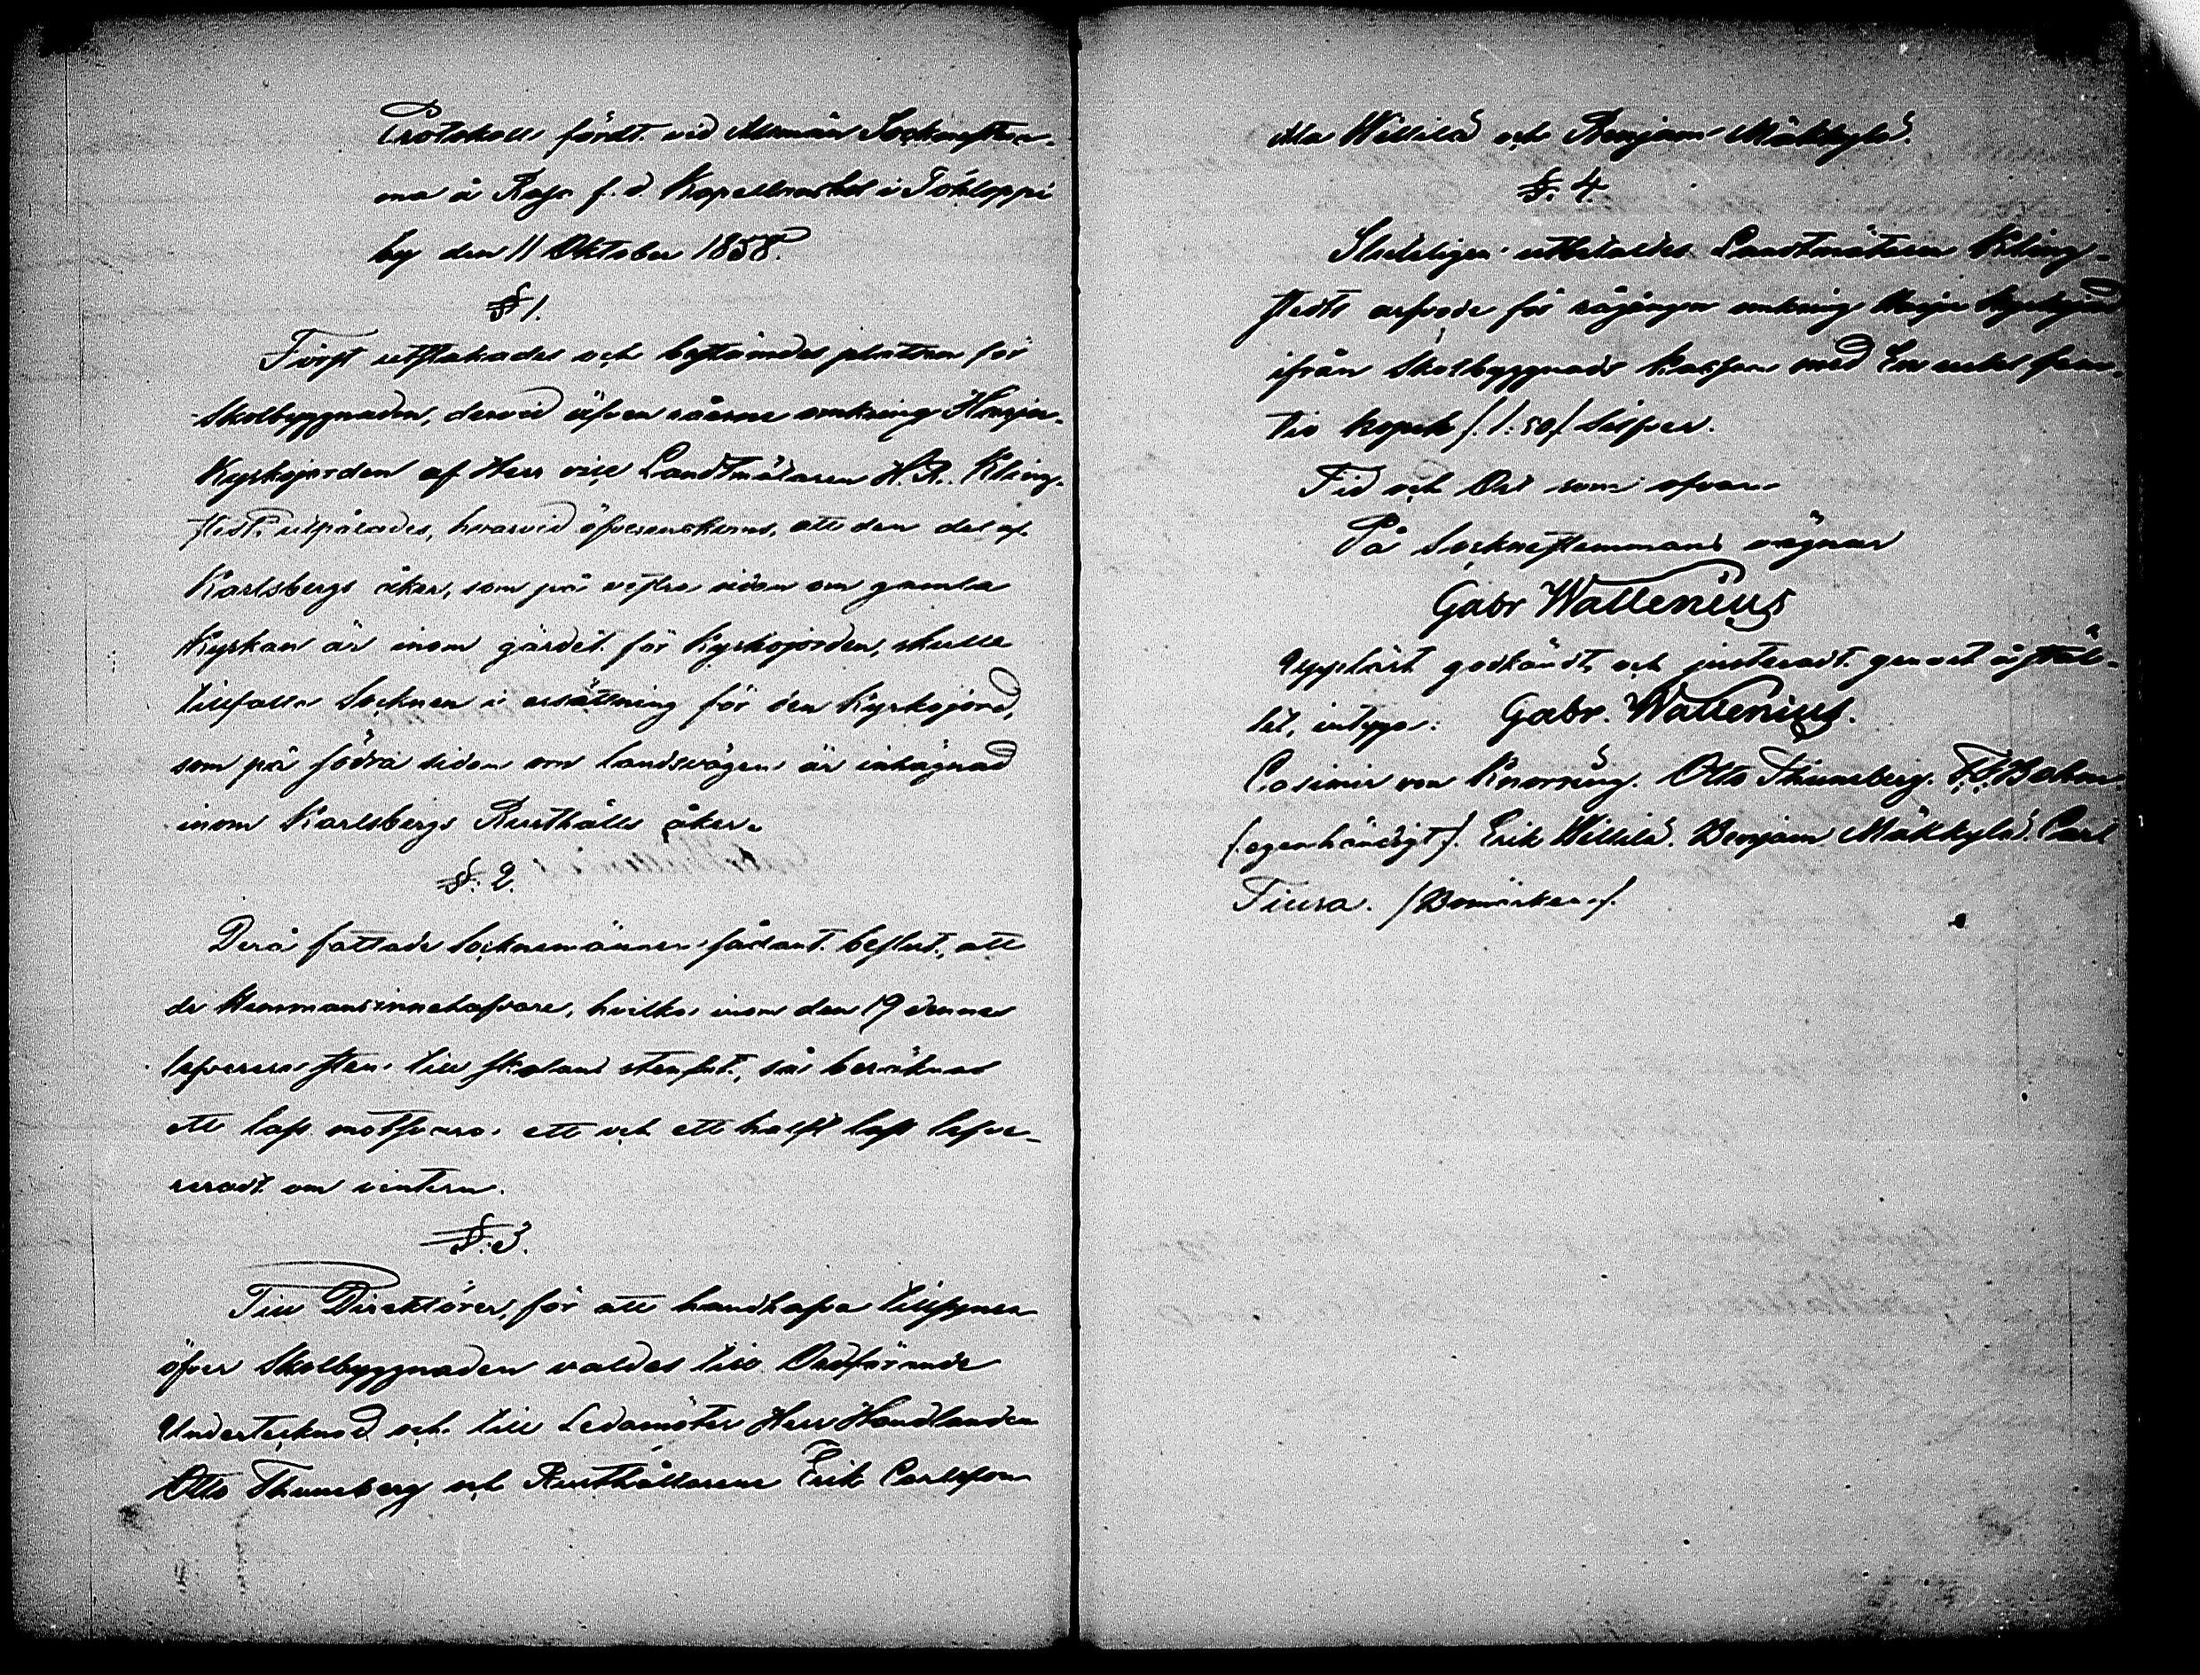 Protokoll fördt vid Allmän Sockenstäm-
ma å Raja f. d. Kapellansbol i Tohloppi
by den 11 Oktober 1858.
§ 1.
Först utstakades och bestämdes platsen för
Skolbyggnaden, dervid äfven råerne omkring Harju
Kyrkojorden af Herr vice Landtmätaren H. R. Kling-
stedt utpålades, hvarvid öfverenskoms, att den del af
Karlsbergs åker, som på vestra sidan om gamla
Kyrkan är inom gärdet för Kyrkojorden, skulle
tillfalla Socknen i ersättning för den Kyrkojord,
som på södra sidan om Landsvägen är inhägnad
inom Karlsbergs Rusthålls åker.
§. 2.
Derå fattade Socknemännen sådant beslut, att
de Hemmansinnehafvare, hvilka inom den 19 dennes
lefverera sten till skolans stenfot, så beräknas
ett lass motsvara ett och ett halft lass lefve-
reradt om vintern.
§. 3.
Till Direktörer, för att handhafva tillsynen
öfver Skolbyggnaden valdes till Ordförande
Undertecknad och till Ledamöter Herr Handlanden
Otto Thuneberg och Rusthållarene Erik Carlsson
Willilä och Benjam Mäkkylä.
§. 4.
Slutligen utbetaldes Landtmätaren Kling-
stedts arfvode för rågången omkring Harju Kyrkojord
ifrån Skolbyggnads Kassan med En rubel fem-
tio kopek /.1:50./ Silfver.
Tid och Ort som ofvan
På Sockenstemmans vägnar
Gabr Wallenius
Uppläst, godkändt och justeradt genast å stäl-
let, intyga: Gabr. Wallenius.
Casimir von Knorring. Otto Thuneberg. Bohm
/.egenhändigt./. Erik Willilä. Benjam Mäkkylä. Carl
Tiura. /Bomärken./.